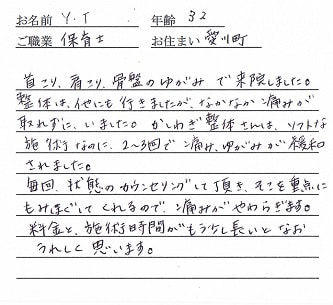 お名前 Y.T 年齢 32
ご職業 保育士 お住まい 愛川町
首こり、肩こり、骨盤のゆがみで来院しました。
整体は、他にも行きましたが、なかなか痛みが
取れずに、いました。かしわぎ整体さんは、ソフトな
施術なのに、2~3回で痛み、ゆがみが緩和
されました。
毎回、状態のカウンセリングして頂き、そこを重点に
もみほぐしてくれるので、痛みがやわらぎます。
料金と、施術時間がもう少し長いとなお
うれしく思います。